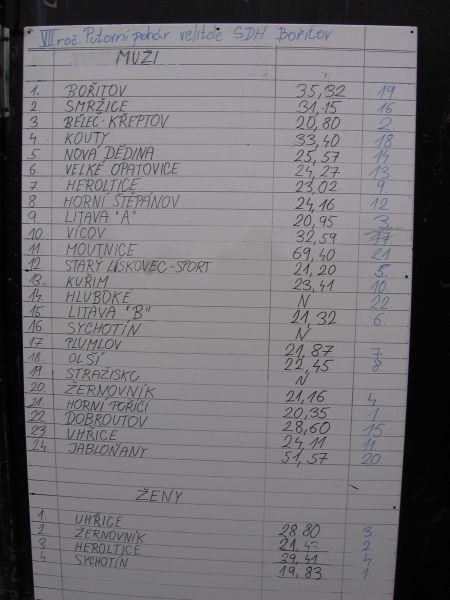 VII roč. Putovní pohár velitele SDH Bořitov
MUŽI
1. BOŘITOV 35,32 19
2 SMRŽICE 31,15 16
3 BĚLEČ-KŘEPTOV 20,80 2
4 KOUTY 33,40 18
5 NOVÁ DĚDINA 25,57 14
6. VELKÉ OPATOVICE 24,27 13
7 HEROLTICE 23,02 9
8 HORNÍ ŠTĚPÁNOV 24,16 12
9 LITAVA "A" 20,95 3
10 VÍCOV 32,59 17
11 MOUTNICE 69,40 21
12 STARÝ LÍSKOVEC-SPORT 21,20 5
13. KUŘIM 23,41 10
14 HLUBOKÉ N 22
15. LITAVA "B" 21,32 6
16. SYCHOTÍN N
17 PLUMLOV 21,87 7
18. OLŠÍ 22,45 8
19 STRAŽISKO N
20. ŽERNOVNÍK 21,16 4
21. HORNÍ POŘÍČÍ 20,35 1
22 DOBROUTOV 28,60 15
23 UHŘICE 24,11 11
24. JABLOŇANY 51,57 20
ŽENY
1. UHŘICE 28,80 3
2 ŽERNOVNÍK 2
3 HEROLTICE 39,41 4
4 SYCHOTÍN 19,83 1